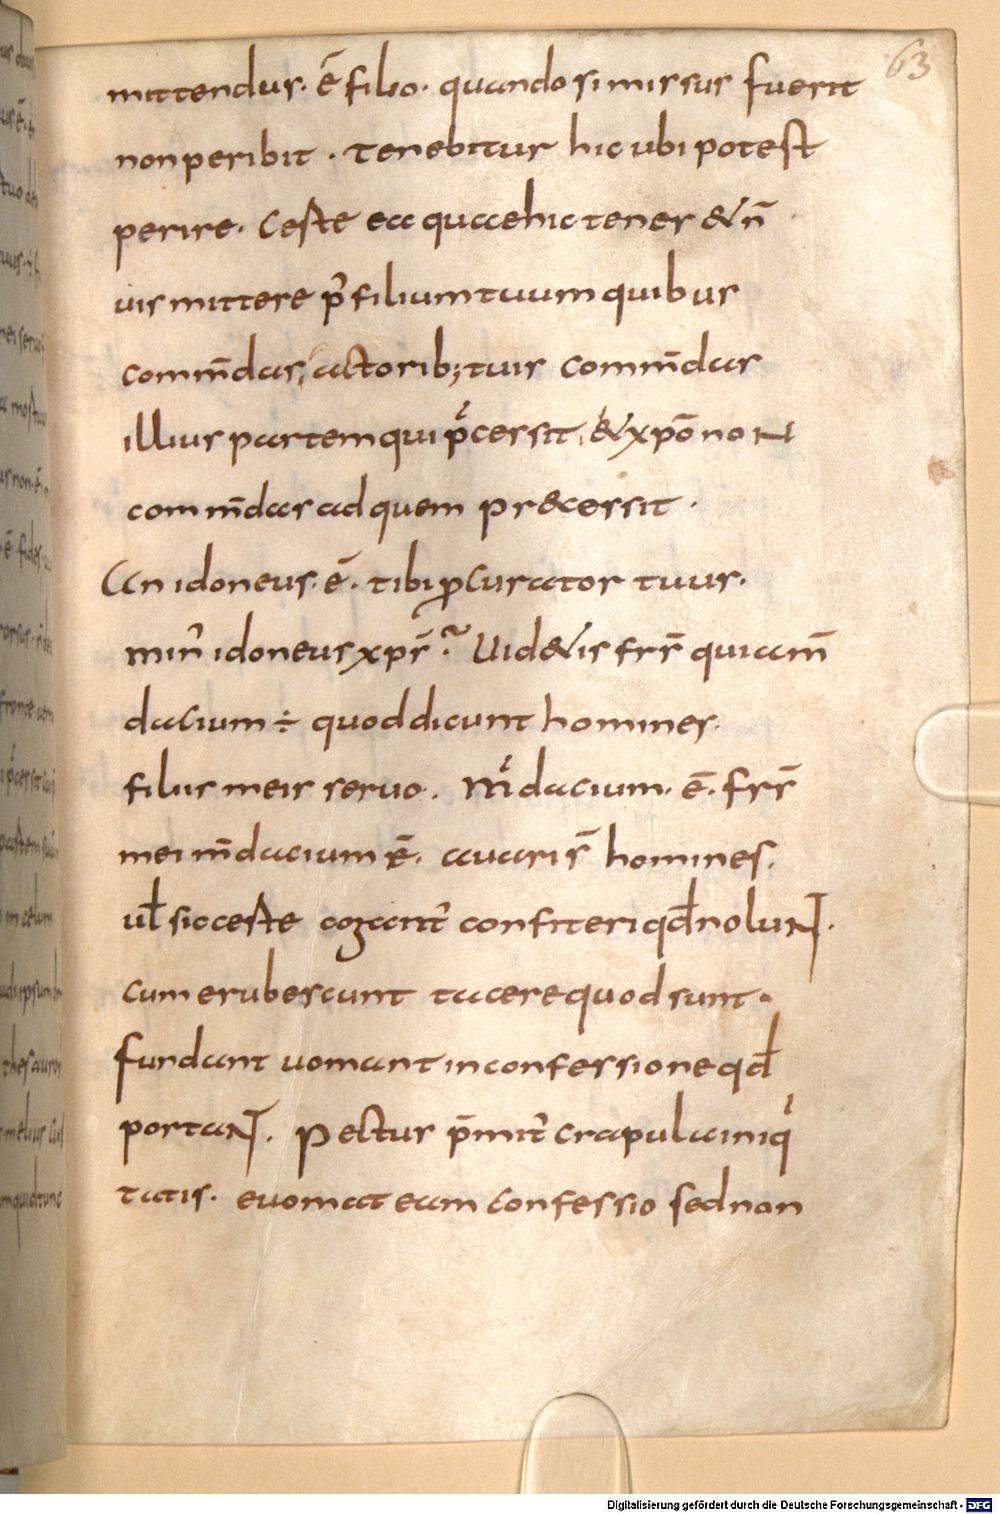 63
mittendus· ē filio· quando si missus fuerit
non peribit · tenebitur hic ubi potest
perire· Ceste ea quae hic tenes & n̄
uis mittere p̄ filium tuum quibus
comm̄das, actorib; tuis comm̄das
illius partem qui p̄cessit, & xp̄o non
comm̄das ad quem præcessit ·
An idoneus· ē · tibi ꝓcurator tuus·
min' idoneus xp̄s? Uidetis frs̄ quia m̄
dacium ÷ quod dicunt homines·
filiis meis seruo · M̄dacium· ē· frs̄
mei m̄dacium ē· auaris̄ homines·
ul̄ sic ceste cogant' confiteri qd̄ nolunt·
Cum erubescunt tacere quod sunt·
fundant uomant in confessione qd̄
portant· Pectus p̄mit' crapula iniq
tatis· euomat eam confessio sed non
Digitalisierung gefördert durch die Deutsche Forschungsgemeinschaft - DFG